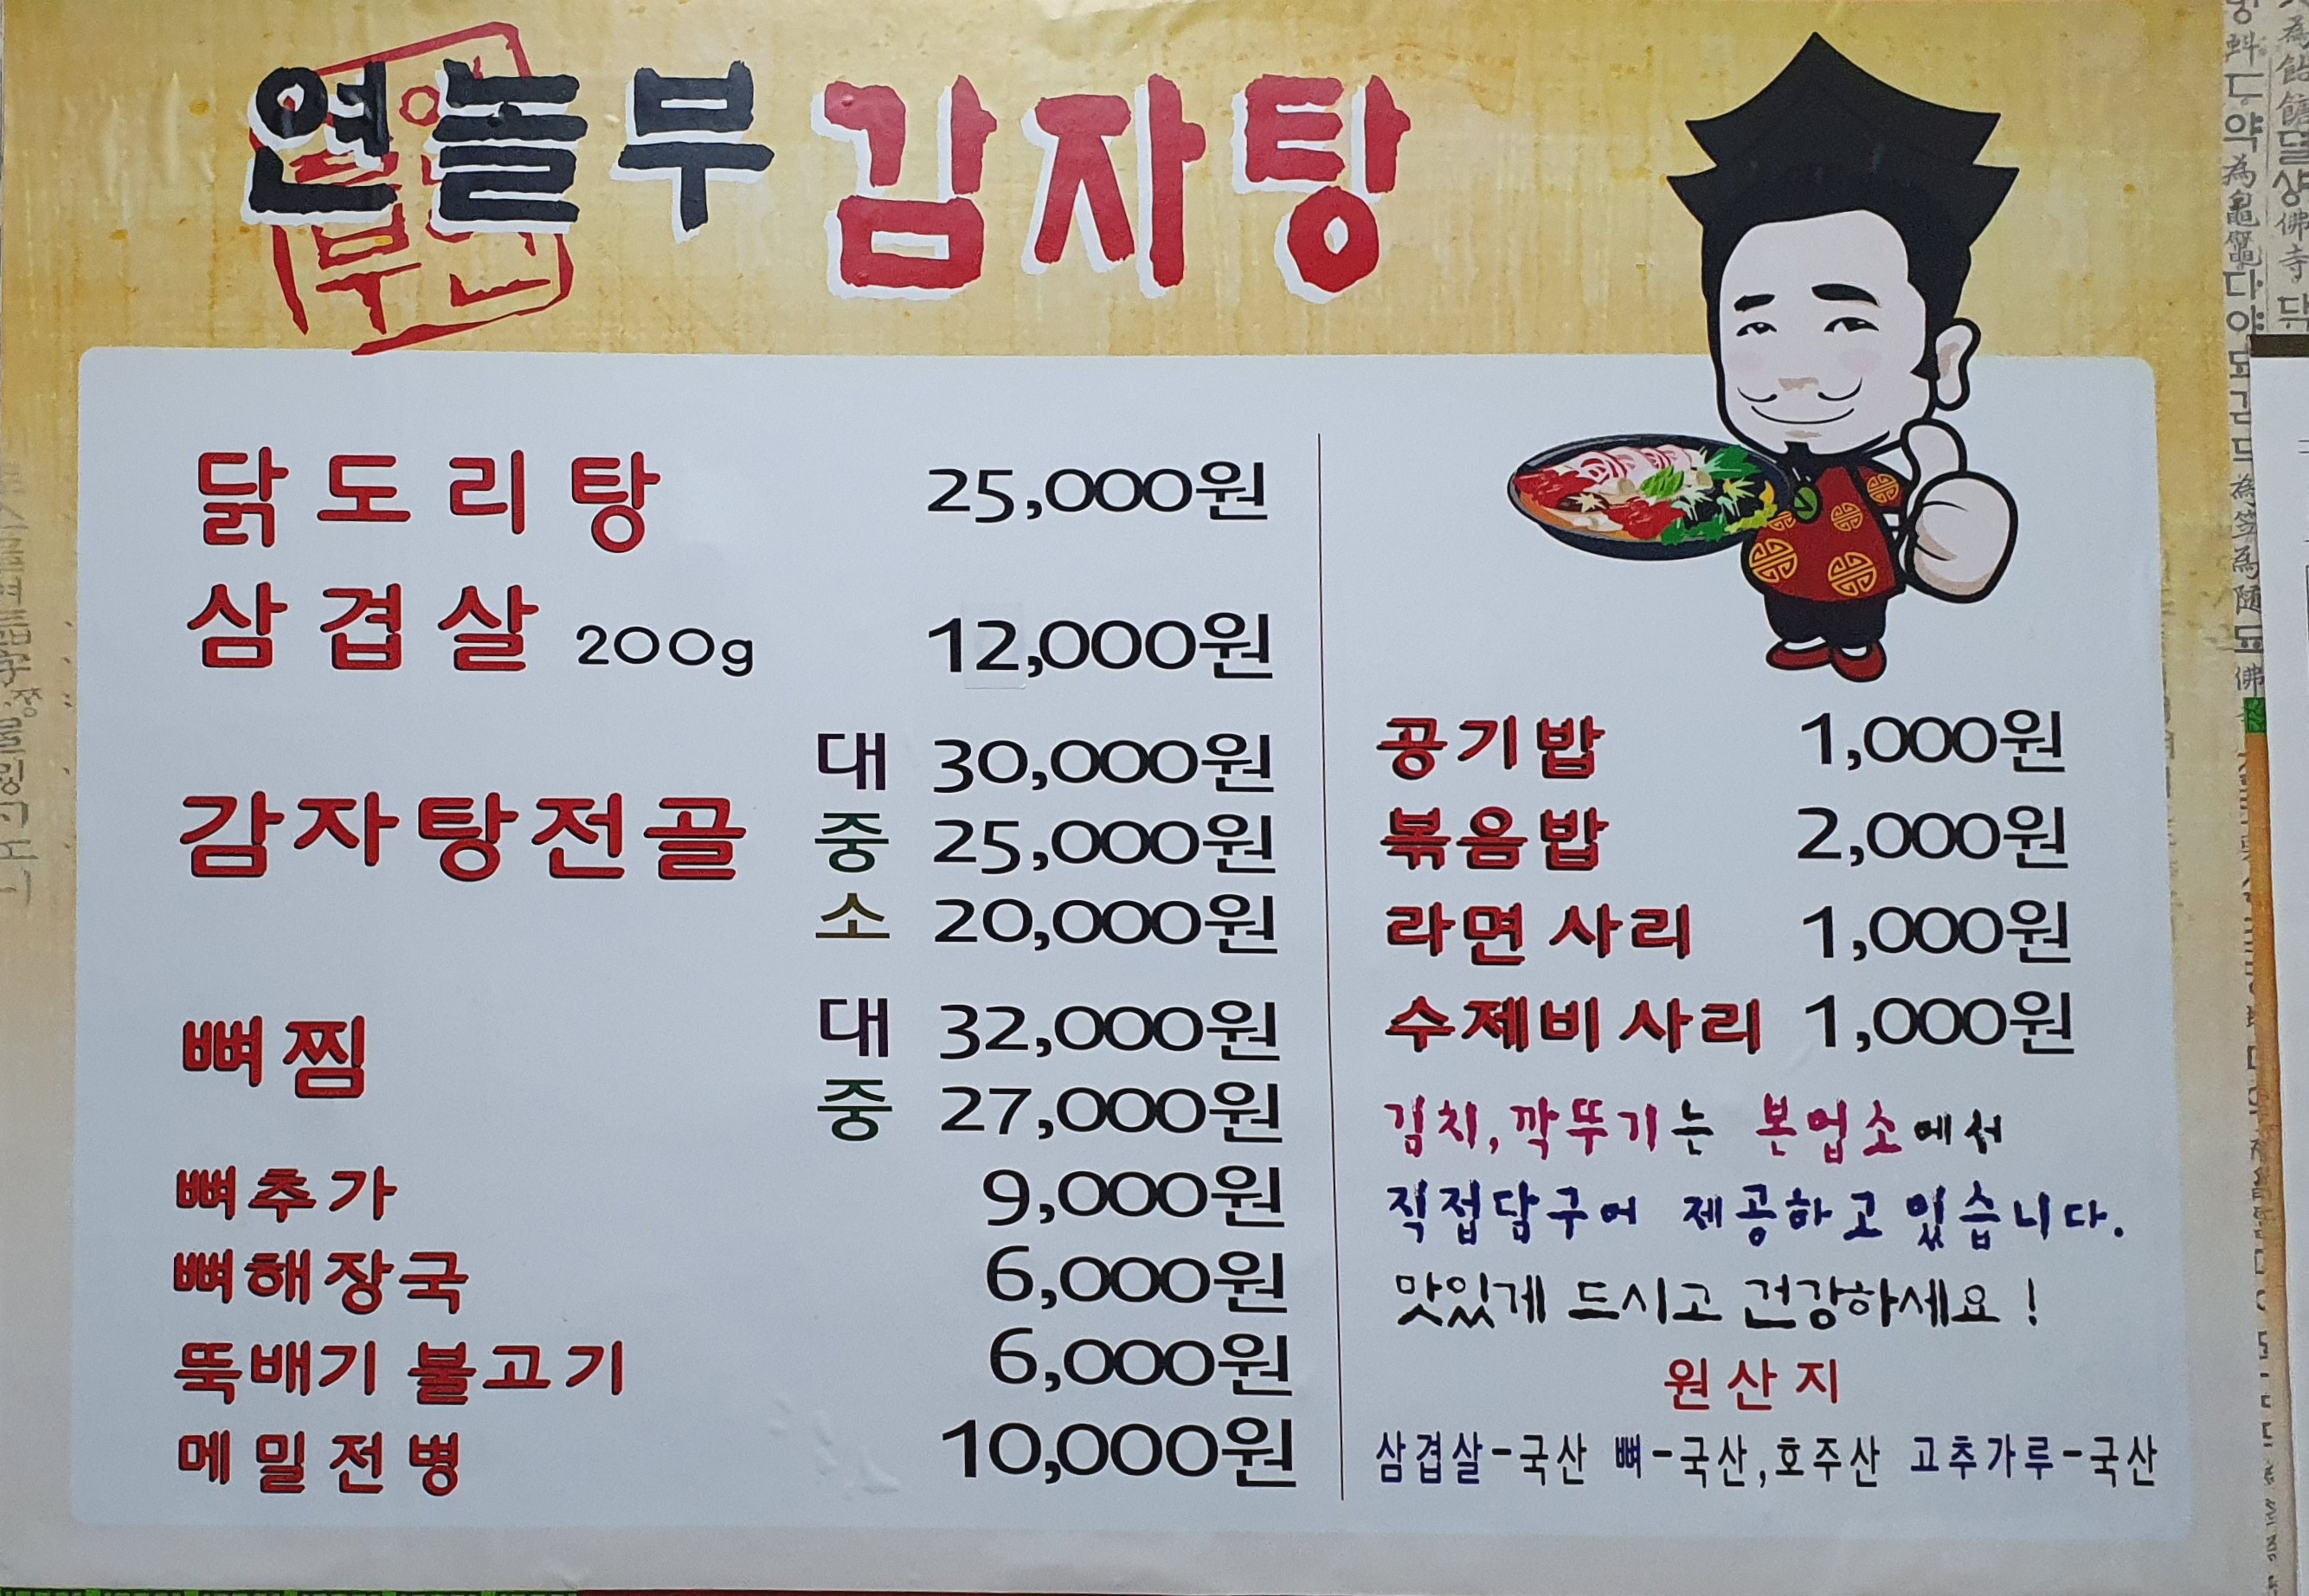 연놀부 감자탕
닭도리탕 25,000원
삼겹살 200g 12,000원
감자탕전골
대 30,000원
중 25,000원
소 20,000원
뼈찜
대 32,000원
중 27,000원
뼈추가 9,000원
뼈해장국 6,000원
뚝배기 불고기 6,000원
메밀전병 10,000원
공기밥 1,000원
볶음밥 2,000원
라면사리 1,000원
수제비사리 1,000원
김치,깍뚜기는 본업소에서
직접담구어 제공하고 있습니다.
맛있게 드시고 건강하세요!
원산지
삼겹살-국산 뼈-국산,호주산 고추가루-국산